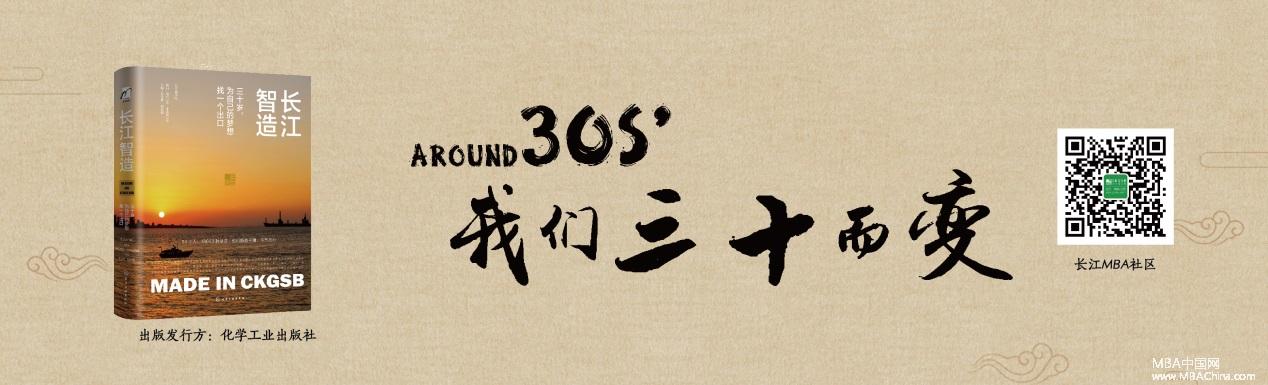 长江
智造
三十岁，
为自己的梦想
找一个出口
长江智造
MADE IN CKGSB
出版发行方：化学工业出版社
AROUND 30S'
我们三十而变
长江MBA社区
MBA中国网
www.MBAChina.com